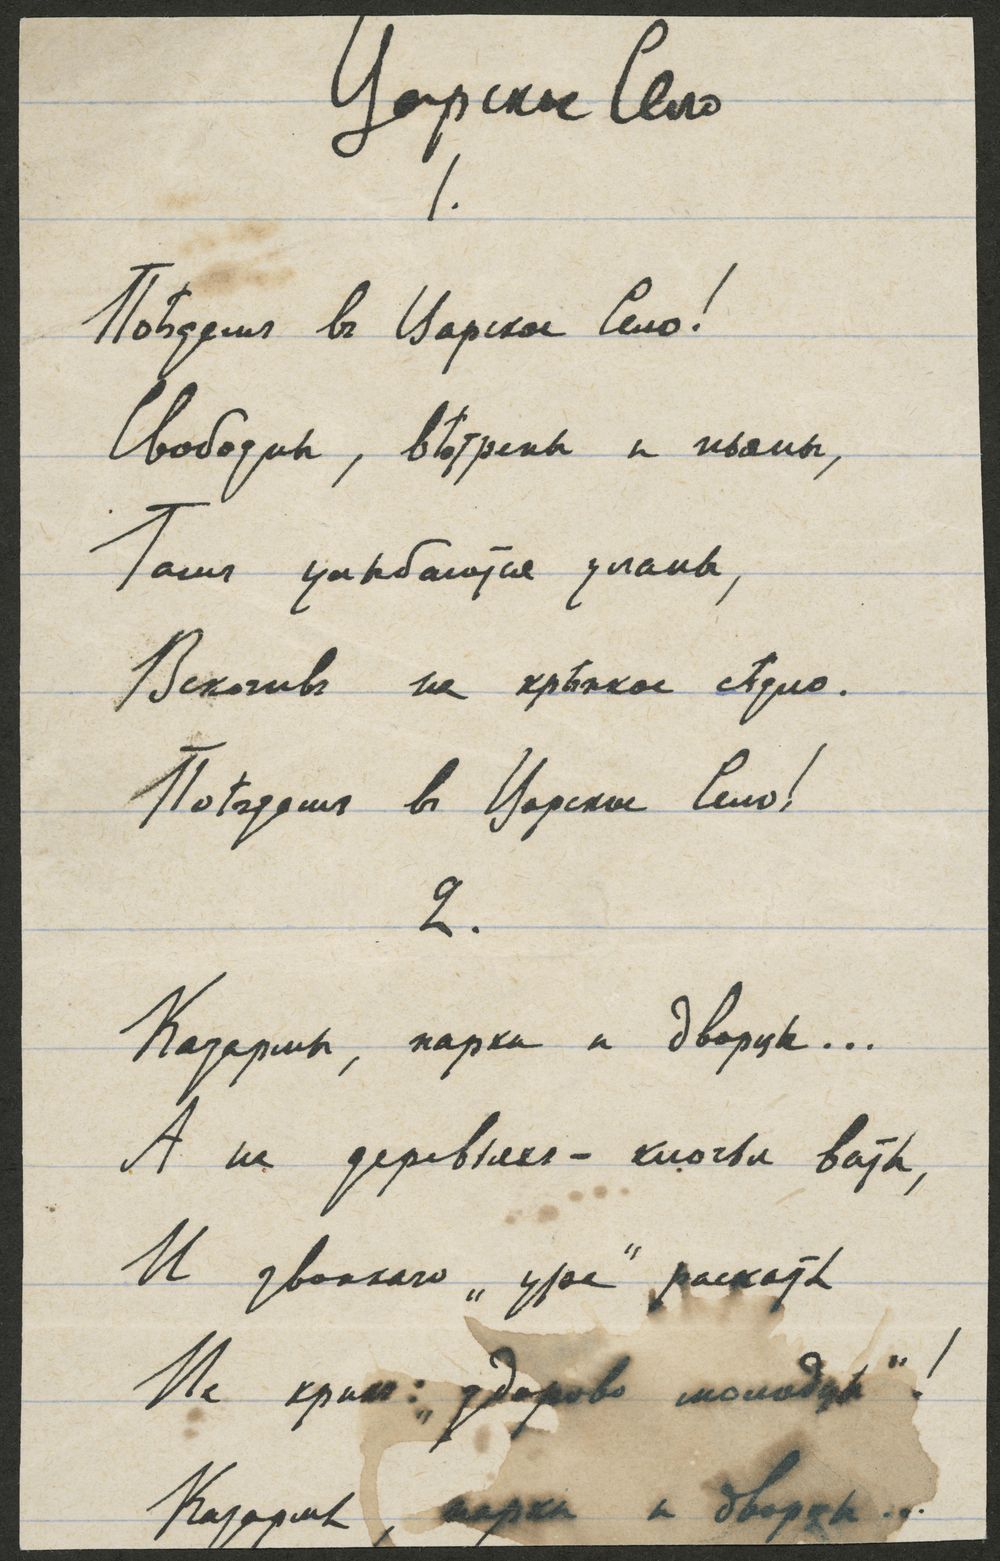 Царское Село
1.
Поѣздемъ въ Царское Село!
Свободны, вѣтрены и пьяны,
Тамъ улыбаются уланы,
Вскочивъ на крѣпкое сѣдло.
Поѣздемъ въ Царское Село!
2.
Казармы, парки и дворцы...
А на деревьяхъ – клочья ваты,
И звонкаго „ура“ раскаты
На крикъ: „здорово молодцы“!
Казармы, парки и дворцы...